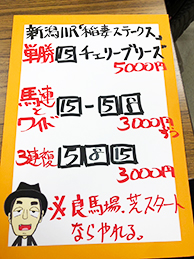 新潟11R"稲妻ステークス"
単勝 15 チェリーブリーズ
5000円
馬連とワイド 15-5,8
3000円ずつ
3連複 5,8,15
3000円
※良馬場、芝スタート
ならやれる。